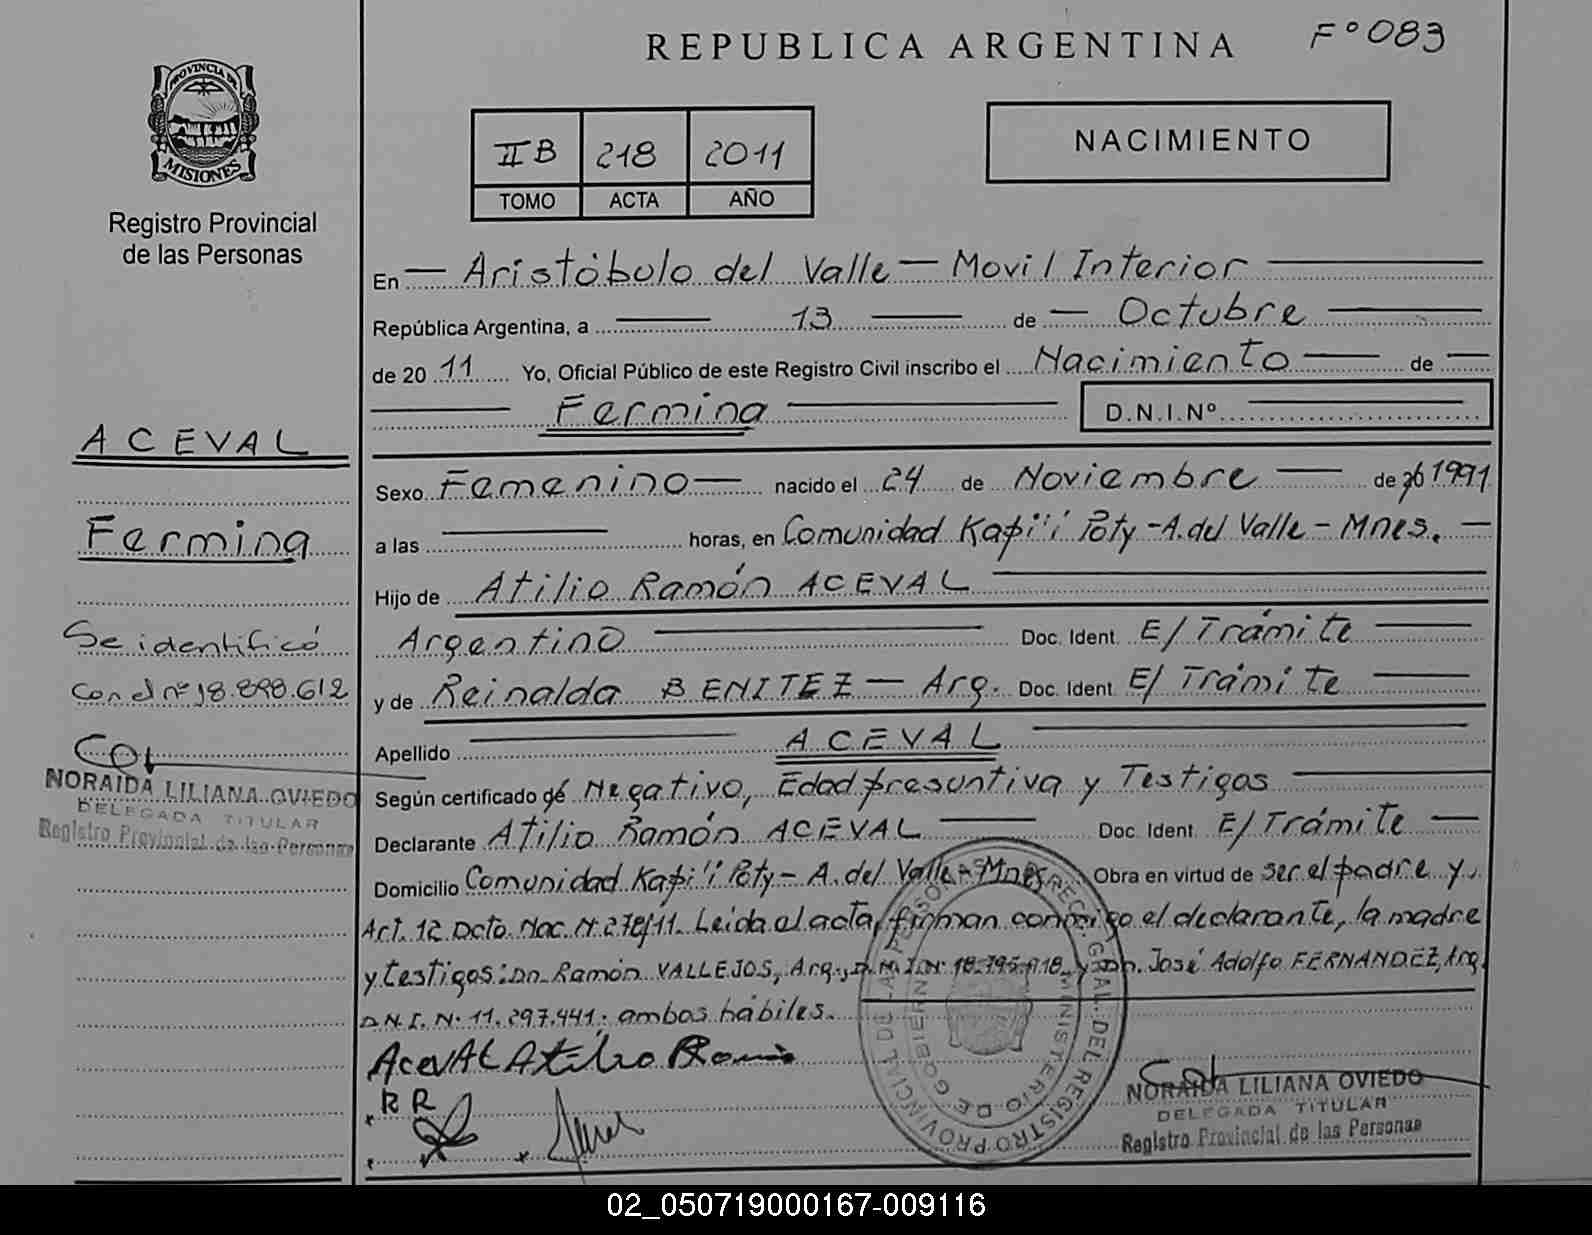 REPUBLICA ARGENTINA
Fº 083
PROVINCIA DE
MISIONES
Registro Provincial
de las Personas
II B 218 2011
TOMO ACTA AÑO
NACIMIENTO
En — Aristóbulo del Valle — Movil Interior —
República Argentina, a — 13 — de — Octubre —
de 20 11 Yo, Oficial Público de este Registro Civil inscribo el Nacimiento — de —
— Fermina — D.N.I.Nº —
ACEVAL
Fermina
Se identificó
con el nº 18.898.612
NORAIDA LILIANA OVIEDO
DELEGADA TITULAR
Registro Provincial de las Personas
Sexo Femenino — nacido el 24 de Noviembre — de 1991
a las — horas, en Comunidad Kapi'i Poty - A. del Valle - Mnes. —
Hijo de Atilio Ramón ACEVAL —
Argentino — Doc. Ident. E/ Trámite —
y de Reinalda BENITEZ — Arg. Doc. Ident. E/ Trámite —
Apellido — ACEVAL —
Según certificado de Negativo, Edad presuntiva y Testigos —
Declarante Atilio Ramón ACEVAL — Doc. Ident. E/ Trámite —
Domicilio Comunidad Kapi'i Poty - A. del Valle - Mnes. Obra en virtud de ser el padre y
Art. 12 Dcto. Nac. N. 278/11. Leída el acta, firman conmigo el declarante, la madre
y testigos: Dn. Ramón VALLEJOS, Arg., D.N.I. Nº y Dn. José Adolfo FERNANDEZ, Arg.
D.N.I. N. 11.297.441. ambos hábiles.
AcevAL Atilio Ramón
RR
DIREC. GRAL. DEL REGISTRO PROVINCIAL DE LAS PERSONAS
MINISTERIO DE GOBIERNO
NORAIDA LILIANA OVIEDO
DELEGADA TITULAR
Registro Provincial de las Personas
02_050719000167-009116